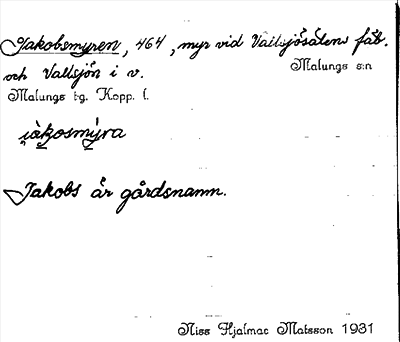 Jakobsmyren, 464, myr vid Vallsjösälens fäb.
och Vallsjön i v.
Malungs s:n
Malungs tg. Kopp. l.
i̯àkosmy̆ra
Jakobs är gårdsnamn.
Niss Hjalmar Matsson 1931